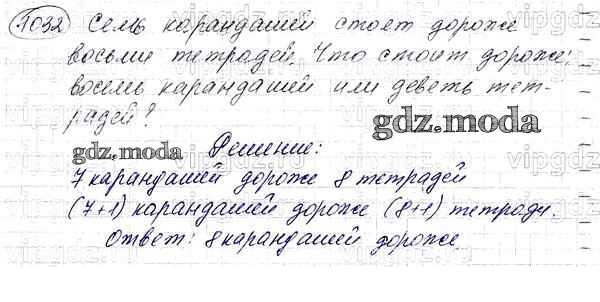 1032 Семь карандашей стоят дороже
восьми тетрадей. Что стоит дороже:
восемь карандашей или девять тет-
радей?
gdz.moda
gdz.moda Решение:
7 карандашей дороже 8 тетрадей
(7+1) карандашей дороже (8+1) тетради.
Ответ: 8 карандашей дороже